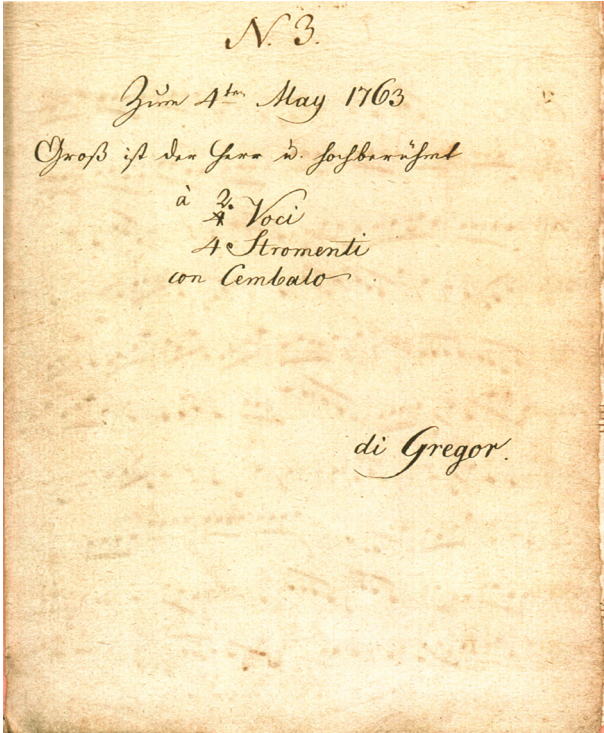 N. 3.
Zum 4ten May 1763
Groß ist der Herr u. hochberühmt
à 2. Voci
4 Stromenti
con Cembalo
di Gregor.